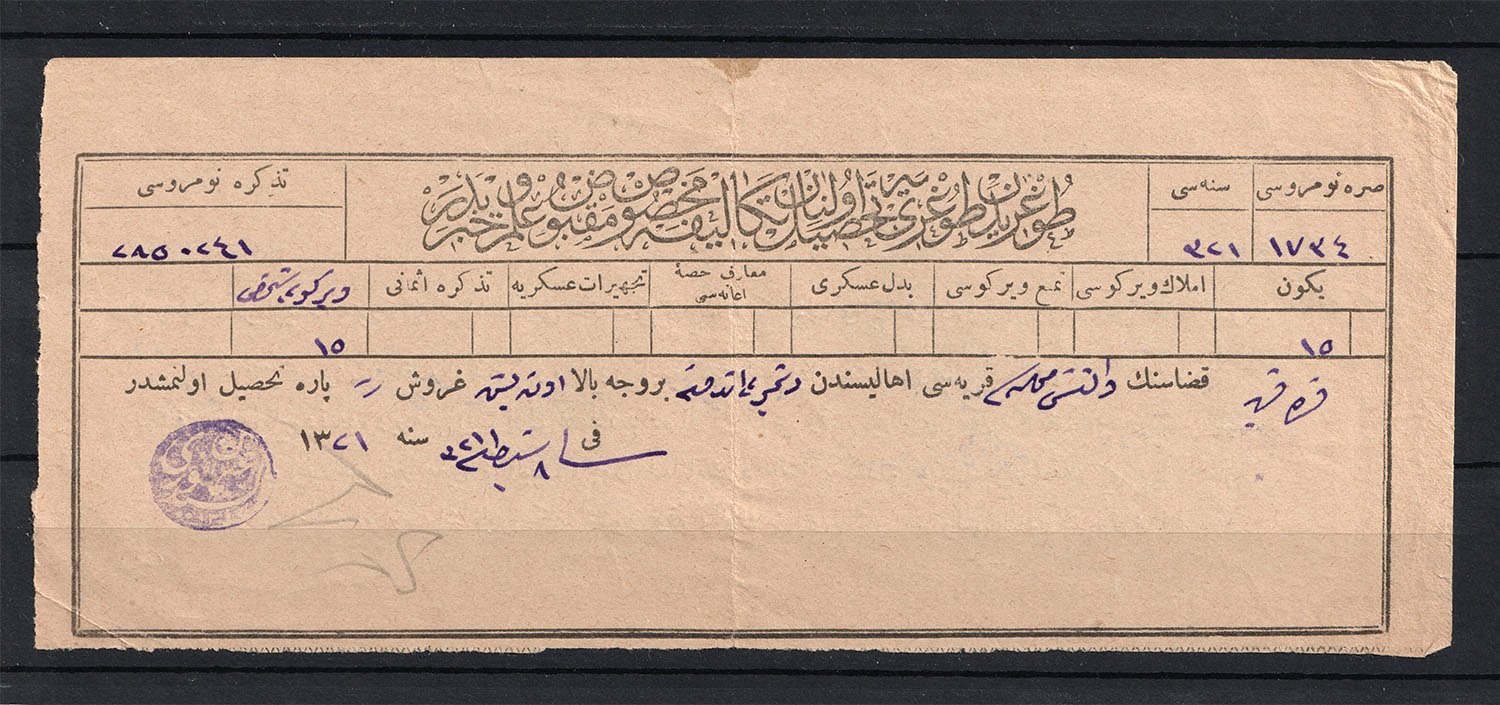 صره نومروسی
١٧٣٤
سنه‌سی
٣٢١
طوغریدن طوغری‌یه تحصیل اولنان تكالیفه مخصوص مقبوض و علم و خبردر
تذكره نومروسی
٢٨٥٠٢٤١
یكون
املاك ویركوسی
تمتع ویركوسی
بدل عسكری
معارف حصهٔ اعانه‌سی
تجهیزات عسكریه
تذكره اثمانی
ویركوء شخصی
١٥
١٥
قضاسنك قریه‌سی اهالیسندن بروجه بالا اون بش غروش پاره تحصیل اولنمشدر
فی سنه ١٣٢١